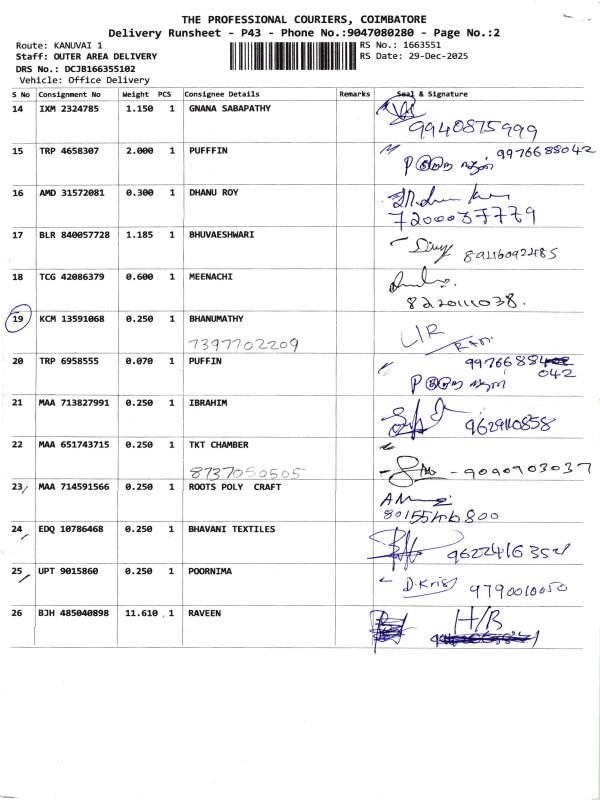 THE PROFESSIONAL COURIERS, COIMBATORE
Delivery Runsheet - P43 - Phone No.:9047080280 - Page No.:2
Route: KANUVAI 1 RS No.: 1663551
Staff: OUTER AREA DELIVERY RS Date: 29-Dec-2025
DRS No.: DCJB166355102
Vehicle: Office Delivery
S No Consignment No Weight PCS Consignee Details Remarks Seal & Signature
14 IXM 2324785 1.150 1 GNANA SABAPATHY
9940875999
15 TRP 4658307 2.000 1 PUFFFIN 9976688042
16 AMD 31572081 0.300 1 DHANU ROY
7200037779
17 BLR 840057728 1.185 1 BHUVAESHWARI
8946092485
18 TCG 42086379 0.600 1 MEENACHI
8220111038.
19 KCM 13591068 0.250 1 BHANUMATHY
7397702209
20 TRP 6958555 0.070 1 PUFFIN 99766884
042
21 MAA 713827991 0.250 1 IBRAHIM
9629110858
22 MAA 651743715 0.250 1 TKT CHAMBER
8737050505 - 9090903037
23 MAA 714591566 0.250 1 ROOTS POLY CRAFT
24 EDQ 10786468 0.250 1 BHAVANI TEXTILES
25 UPT 9015860 0.250 1 POORNIMA
D.Kris 9790010050
26 BJH 485040898 11.610 1 RAVEEN H/R